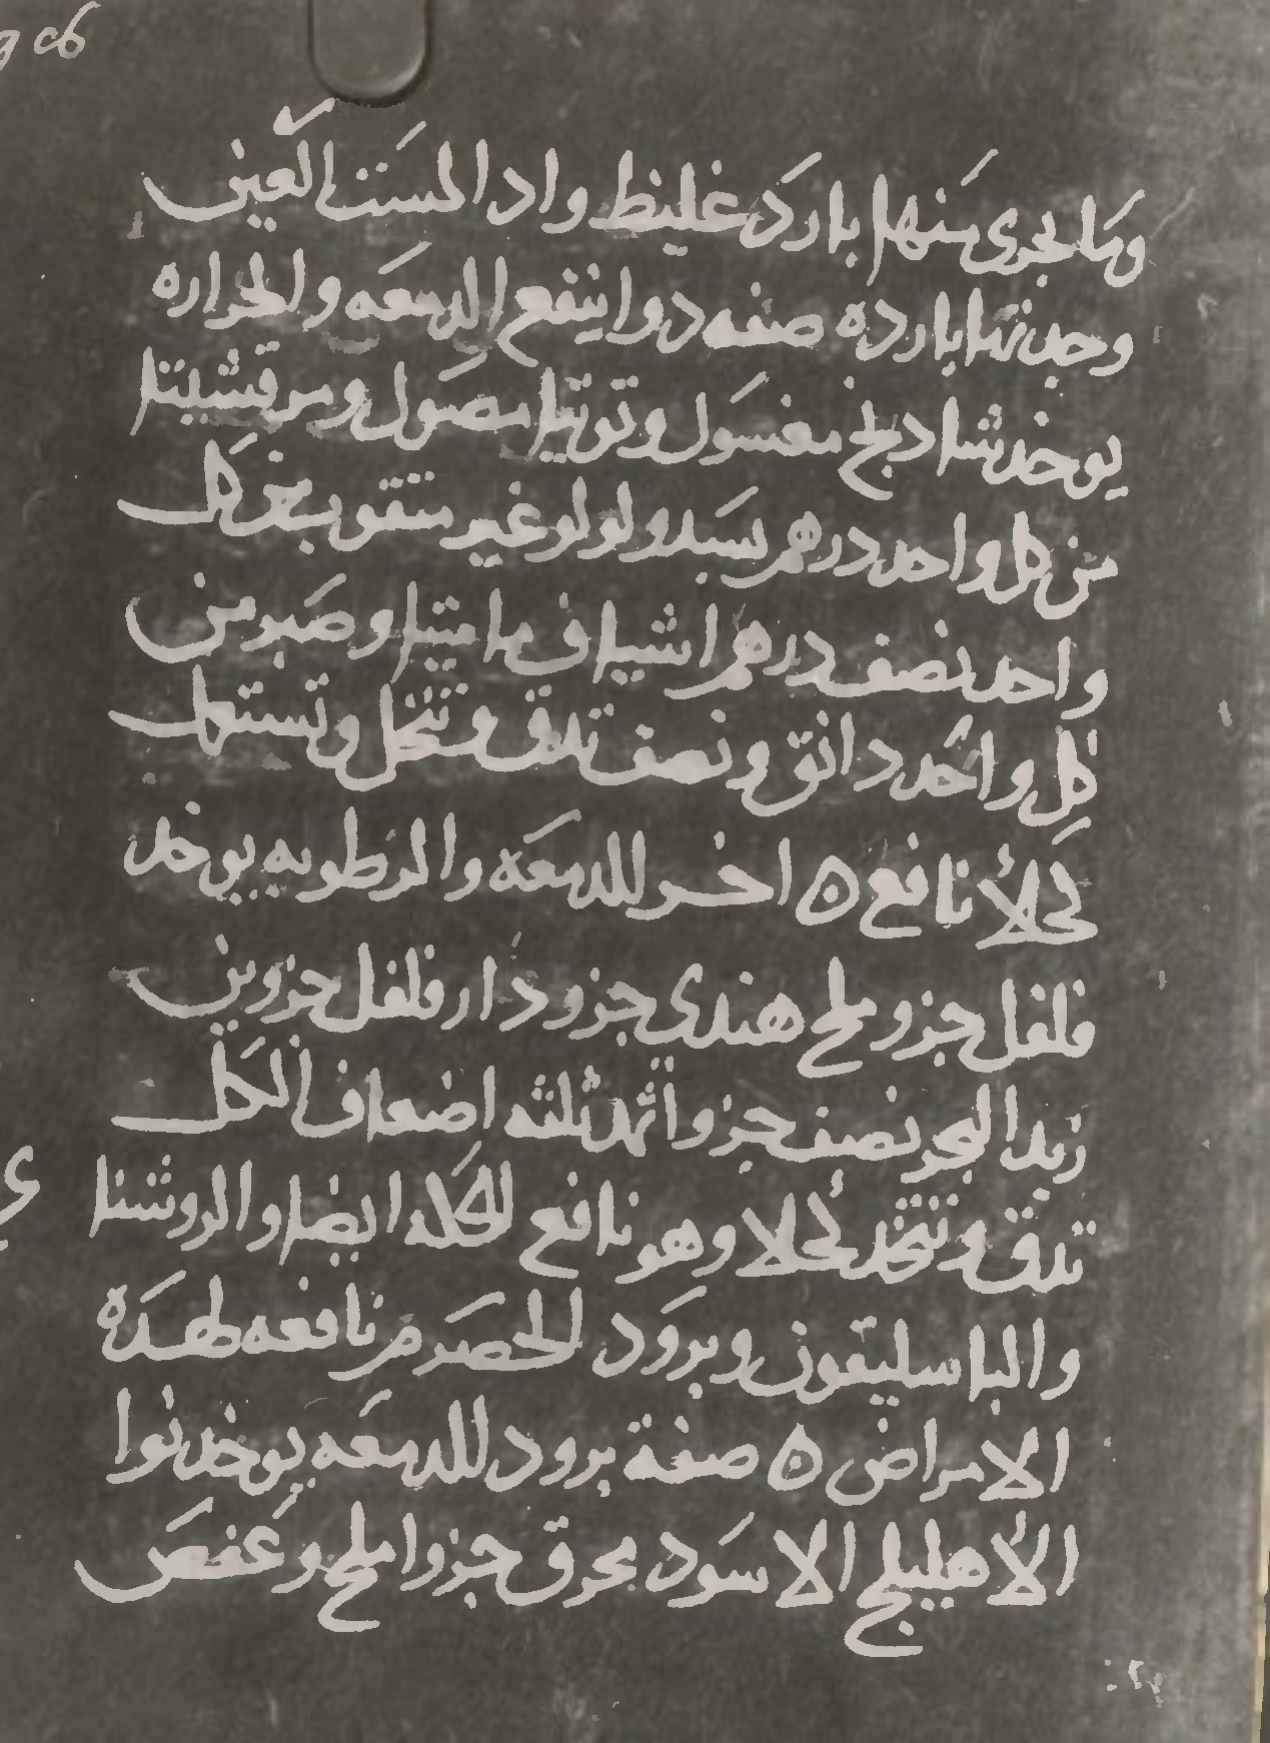 وما يجرى منها بارد غليظ واذا لمست العين
وجدتها بارده صفه دوا ينفع الدمعه والحراره
يوخذ شادنج مغسول وتوتيا مصول ومرقشيتا
من كل واحد درهم بسد ولولو غير مثقوب من كل
واحد نصف درهم اشياف ماميثا وصبر من
كل واحد دانق ونصف تدق وتنخل وتستعمل
كحلا نافع ٥ اخر للدمعه والرطوبه يوخذ
فلفل جزو ملح هندى جزو دار فلفل جزوين
زبد البحر نصف جزو اثمد ثلثه اضعاف الكل
تدق وتتخذ كحلا وهو نافع للحكه ايضا والروشنا
والباسليقون وبرود الحصرم نافعه لهذه
الامراض ٥ صفة برود للدمعه يوخذ نوا
الاهليلج الاسود محرق جزو املج وعفص